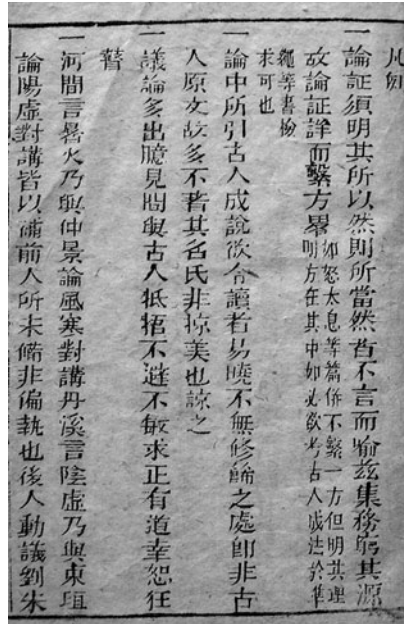 凡例
一論証須明其所以然則所當然者不言而喻茲集務窮其源
故論証詳而繫方畧如怒太息等篇俱不繫一方但明其理
明方在其中如必欲考古人成法於準
繩等書撿
求可也
一論中所引古人成說欲令讀者易曉不無修飾之處卽非古
人原文故多不著其名氏非掠美也諒之
一議論多出臆見間與古人牴牾不避不敏求正有道幸恕狂
瞽
一河間言暑火乃與仲景論風寒對講丹溪言陰虛乃與東垣
論陽虛對講皆以補前人所未備非偏執也後人動議劉朱